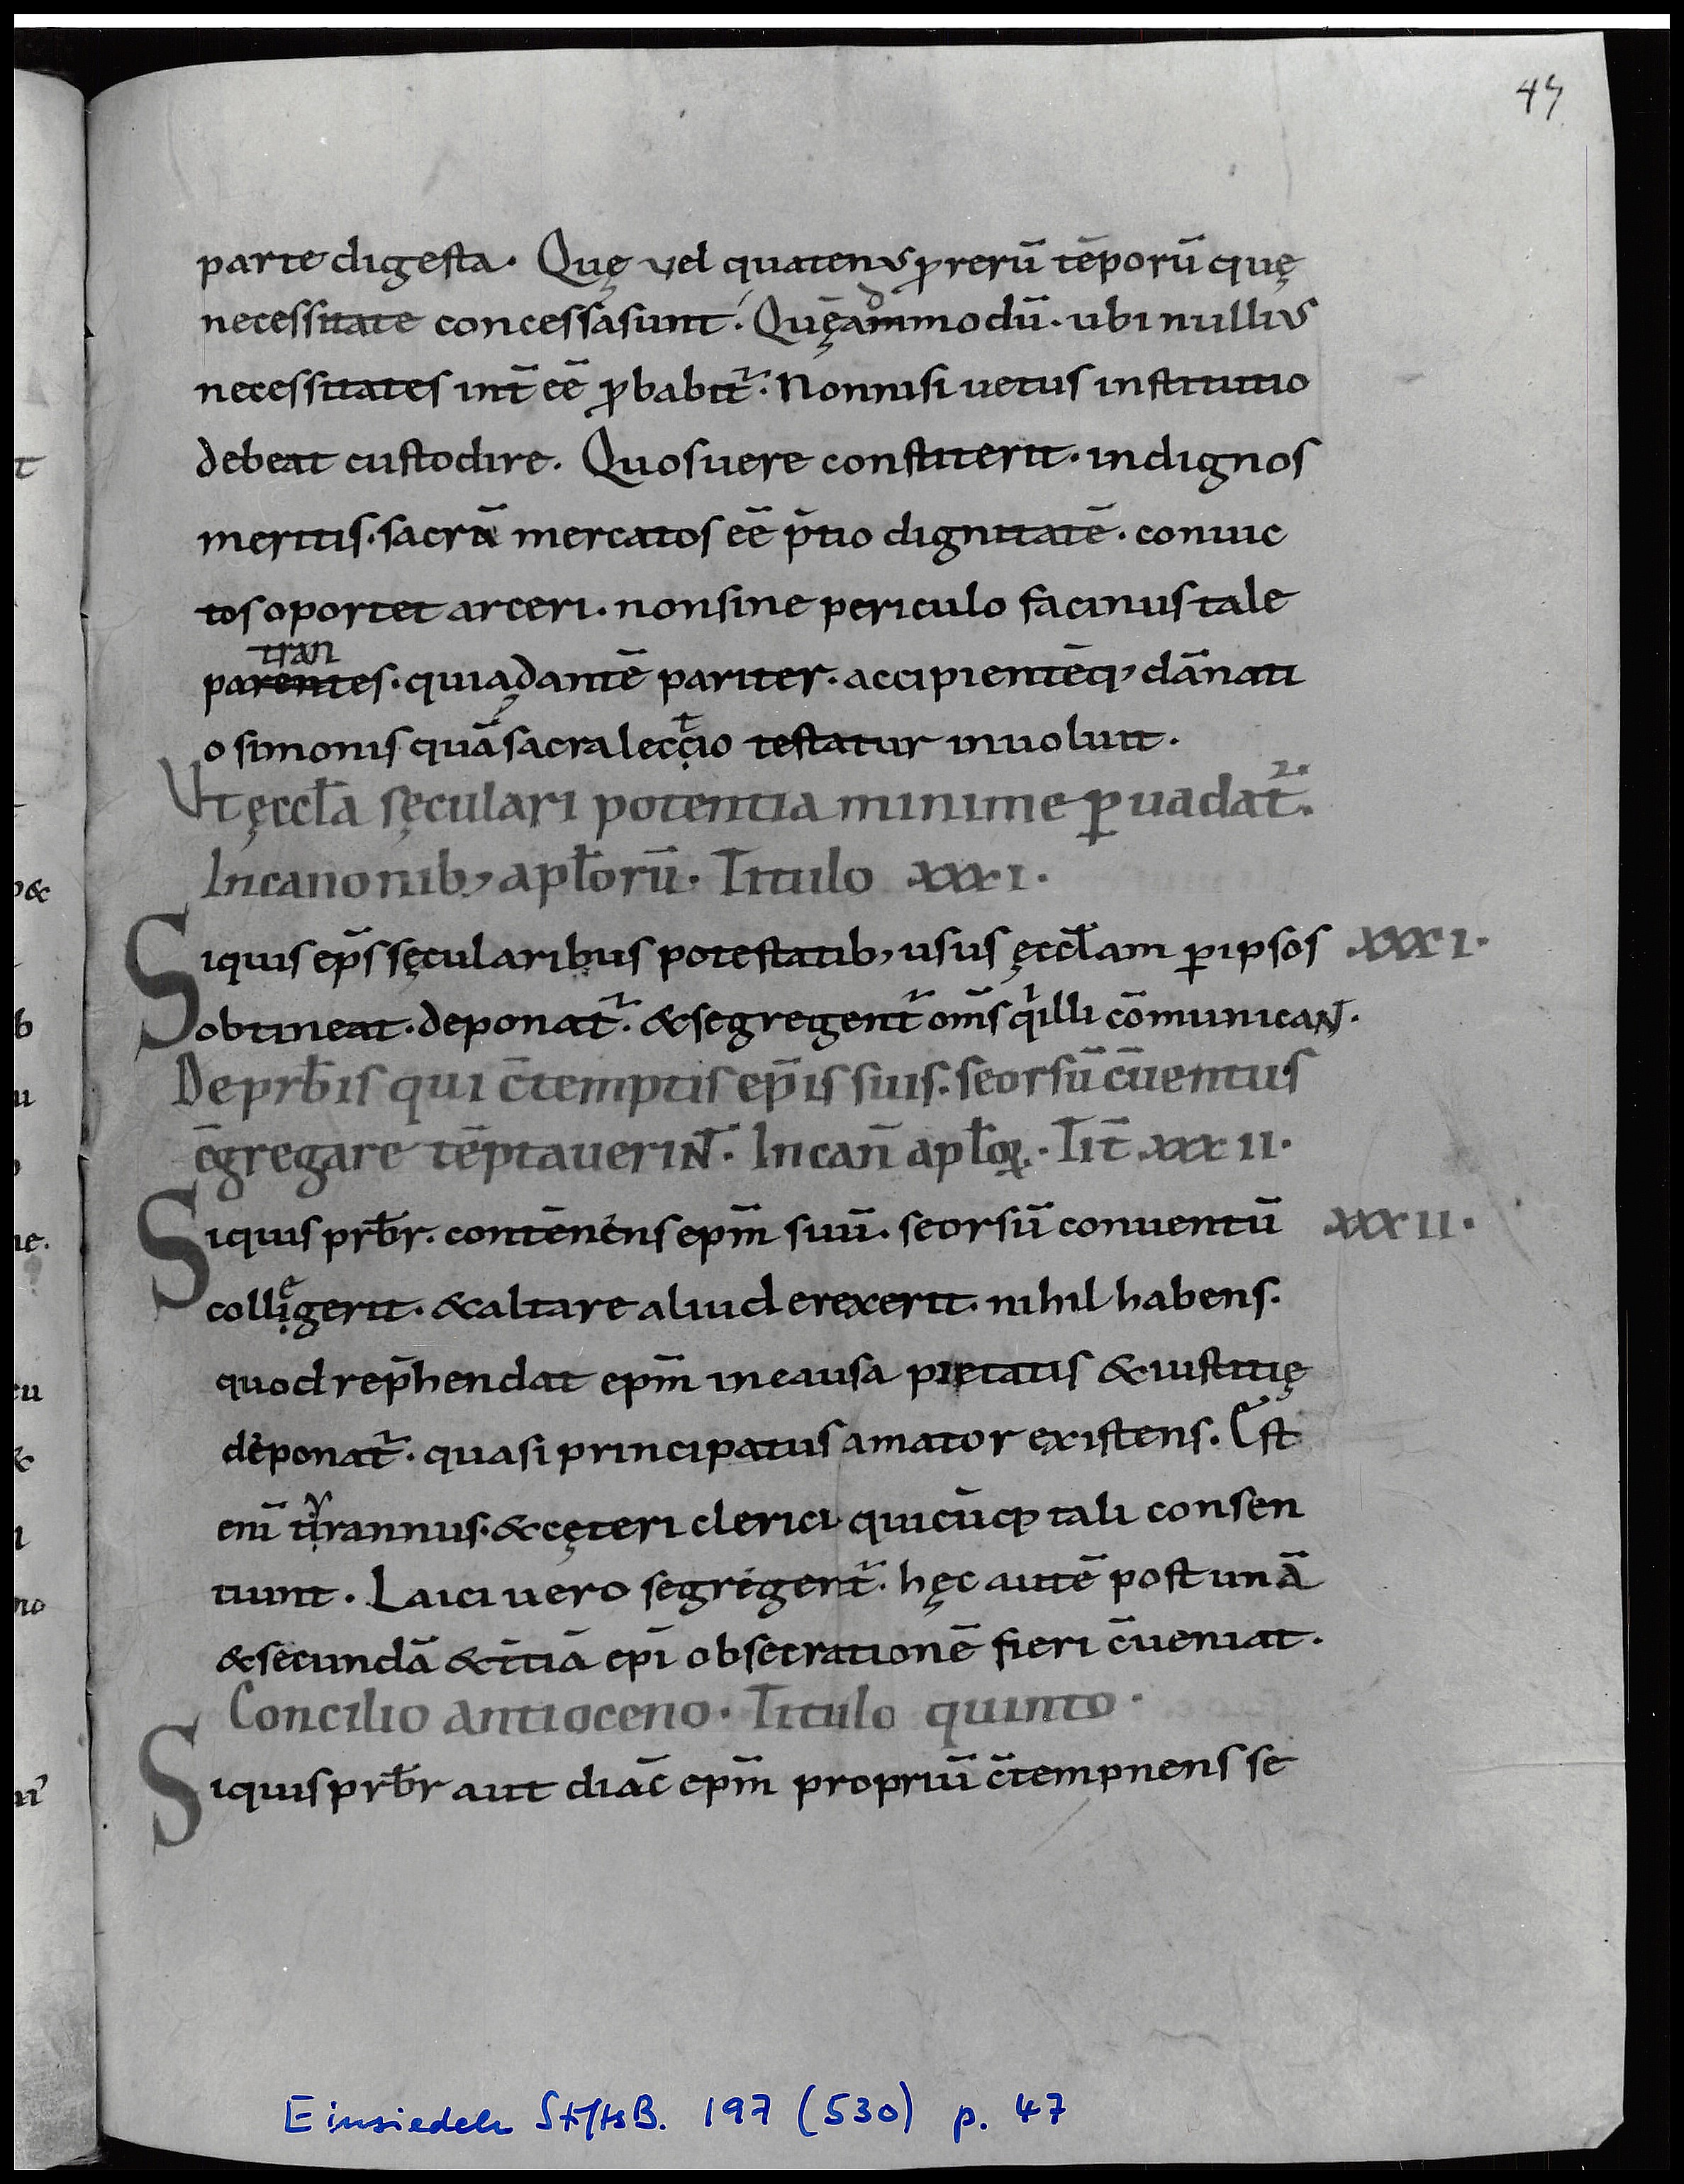 47
parte digesta. Quę vel quatenus ꝓ rerū tēporū quę
necessitate concessa sunt. Quęādmmodū. ubi nullius
necessitates int̄ eē ꝓbabit̃. Non nisi uetus institutio
debeat custodire. Quos uere constiterit. indignos
meritis. sacrā mercatos eē p̄tio dignitatē. conuic
tos oportet arceri. non sine periculo facinus tale
tran
parentes. quia dantē pariter. accipientēq; dānati
o simonis quā sacra lecctio testatur inuoluit.
Vt ęccl̄a sęculari potentia minime ꝑuadat̃.
In canonib; apl̄orū. Titulo xxxi.
Si quis ep̄s sęcularibus potestatib; usus ęccl̄am ꝑ ipsos xxxi.
obtineat. deponat̃. & segregent̃ om̄s qͥ illi cōmunicant.
De prb̄is qui c̄temptis ep̄is suis. seorsū c̄uentus
ēgregare tēptauerint. In can̄ apl̄oꝝ. Tit̄ xxxii.
Si quis prb̄r. contēnens epm̄ suū. seorsū conuentū xxxii.
colligͤerit. & altare aliud erexerit. nihil habens.
quod rep̄hendat epm̄ in causa pietatis & iustitię
deponat̃. quasi principatus amator existens. Est
eni̅ tiyrannus. & cęteri clerici quicūq; tali consen
tiunt. Laici uero segregent̃. hęc autē post unā
& secundā & t̄tiā epi̅ obsecrationē fieri c̄ueniat.
Concilio antioceno. Titulo quinto.
Si quis prb̄r aut diac̄ epm̄ propriū c̄tempnens se
Einsiedeln StiftsB. 197 (530) p. 47